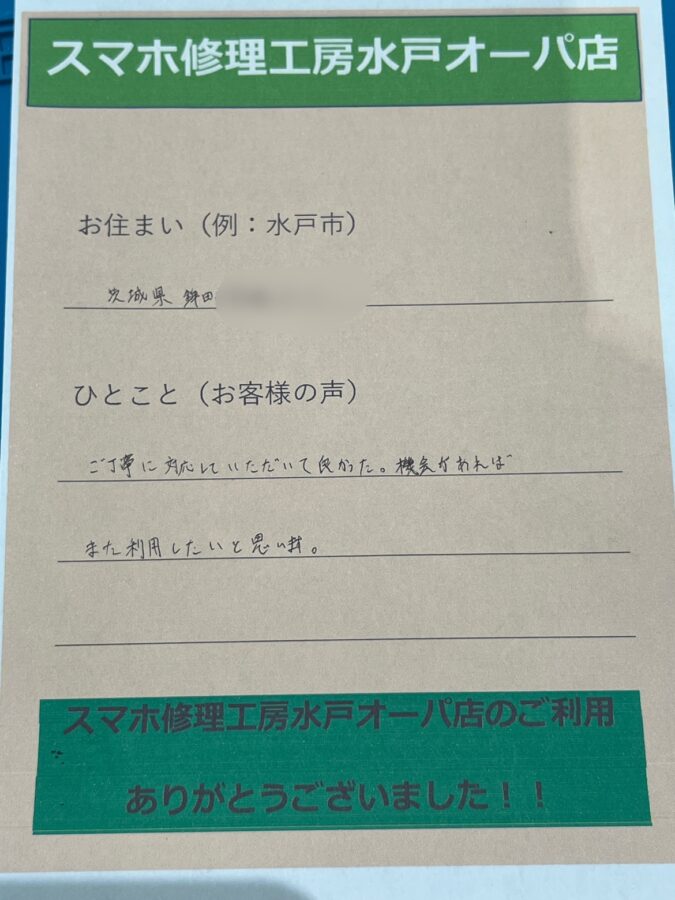 スマホ修理工房水戸オーパ店
お住まい（例：水戸市）
茨城県 鉾田
ひとこと（お客様の声）
ご丁寧に対応していただいて良かった。機会があれば
また利用したいと思います。
スマホ修理工房水戸オーパ店のご利用
ありがとうございました！！